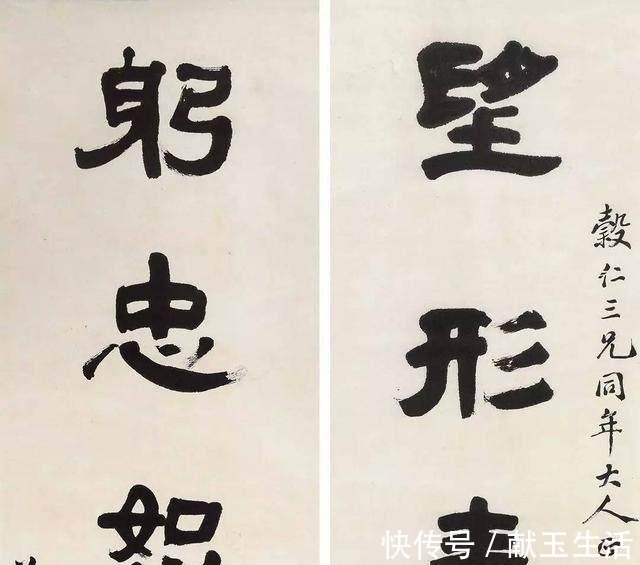 穀仁三兄同年大人正
朢形
躬忠恕
快传号 / 献玉生活